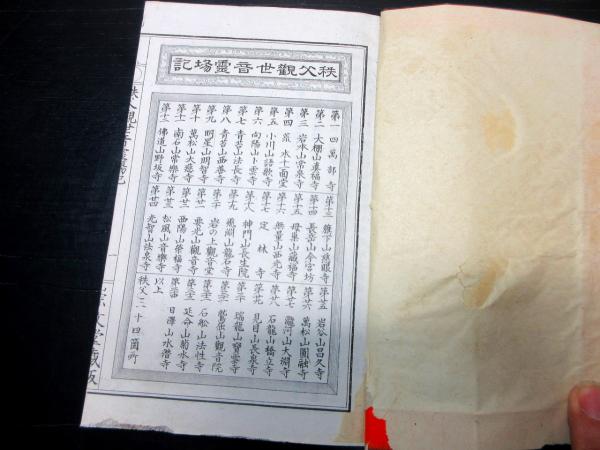 秩父觀世音靈場記
第一 四萬部寺
第二 大棚山真福寺
第三 岩水山常泉寺
第四 荒水十一面堂
第五 小川山語歌寺
第六 向陽山卜雲寺
第七 青苔山法長寺
第八 青苔山西善寺
第九 明星山明智寺
第十 萬松山大慈寺
第十一 南石山常樂寺
第十二 佛道山野坂寺
第十三 旗下山慈眼寺
第十四 長岳山今宮坊
第十五 母巣山藏福寺
第十六 無量山西光寺
第十七 定林寺
第十八 神門山長生院
第十九 飛淵山龍石寺
第二十 岩の上觀音堂
第廿一 要光山觀音寺
第廿二 西陽山榮福寺
第廿三 松風山音樂寺
第廿四 光智山法泉寺
第廿五 岩谷山昌久寺
第廿六 萬松山圓融寺
第廿七 瀧河山大淵寺
第廿八 石龍山橋立寺
第廿九 見目山長泉寺
第三十 瑞龍山寶雲寺
第三十一 鷲岩山觀音院
第三十二 石船山法性寺
第三十三 延命山菊水寺
第三十四 日澤山水潛寺
以上
秩父三十四箇所